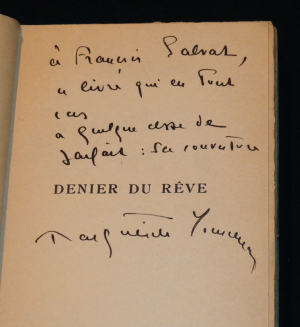 à Francis Salvat,
ce livre qui en tout
cas
a quelque chose de
parfait : sa couverture
DENIER DU RÊVE
Marguerite Yourcenar